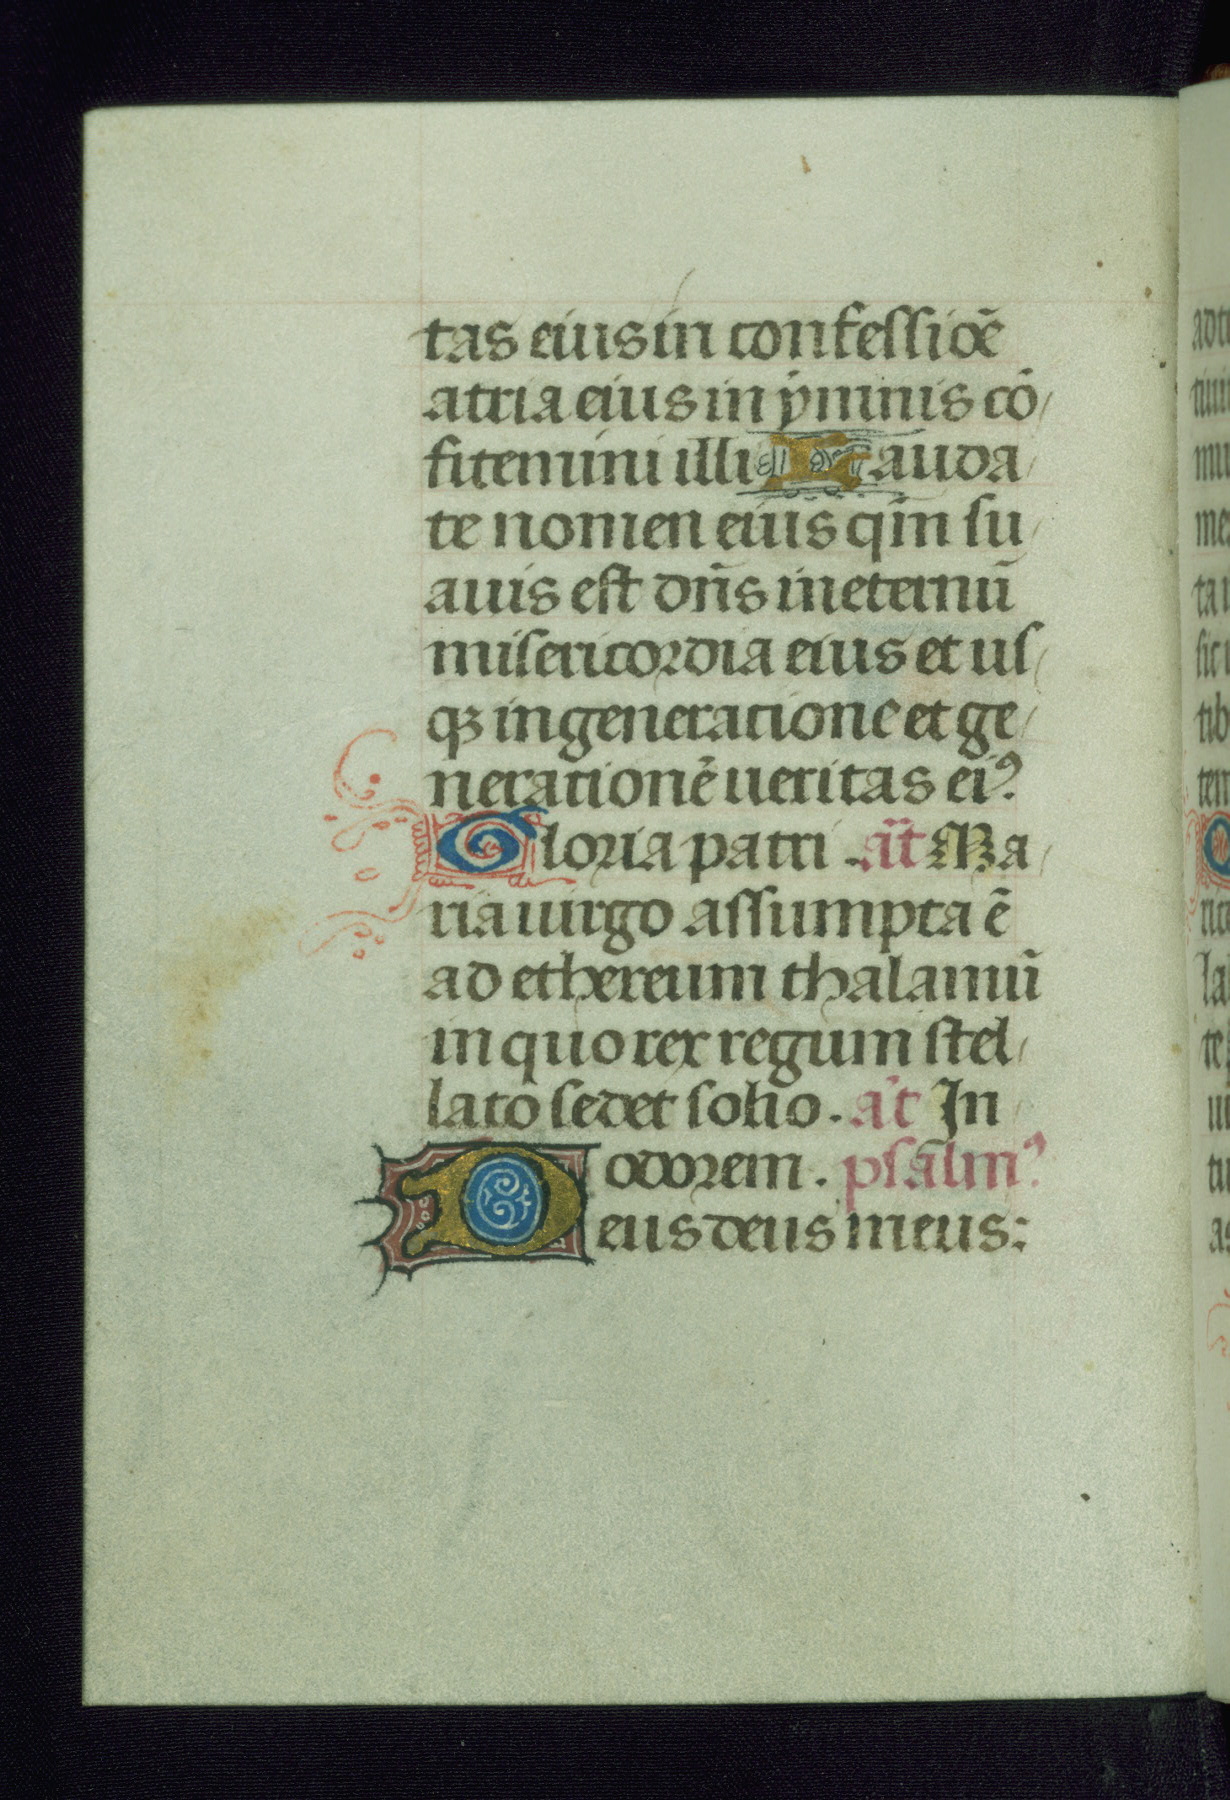 tas eius in confessiõe
atria eius in ẏmnis cõ/
fitemini illi Lauda/
te nomen eius qm̃ su/
auis est dñs in eternũ
misericordia eius et us/
qꝫ in generatione et ge/
nerationẽ ueritas eiꝰ.
Gloria patri . añt Ma/
ria uirgo assumpta ẽ
ad ethereum thalamũ
in quo rex regum stel/
lato sedet solio . añt In
odorem . psalmꝰ.
Deus deus meus: